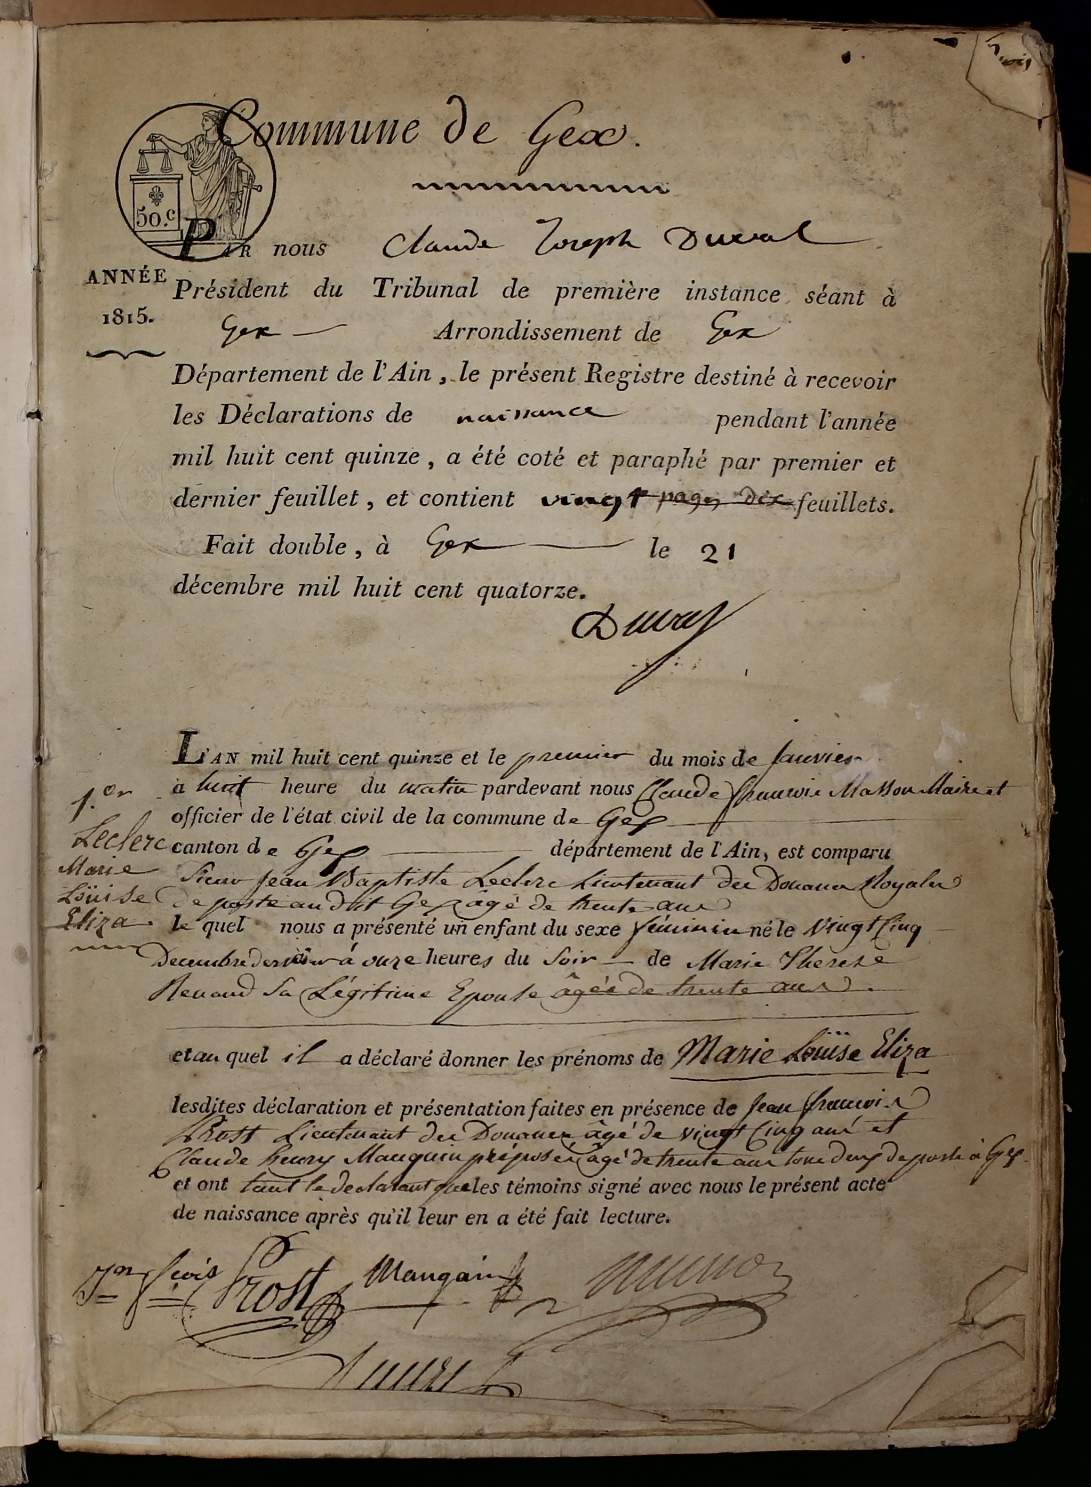 Commune de Gex.
50.c
PAR nous Claude Joseph Duval
ANNÉE
1815.
Président du Tribunal de première instance séant à
Gex Arrondissement de Gex
Département de l'Ain, le présent Registre destiné à recevoir
les Déclarations de naissance pendant l'année
mil huit cent quinze, a été coté et paraphé par premier et
dernier feuillet, et contient vingt pages dix feuillets.
Fait double, à Gex le 21
décembre mil huit cent quatorze.
Duval
L'AN mil huit cent quinze et le premier du mois de Janvier
à huit heure du matin pardevant nous Claude françois Masson Maire et
officier de l'état civil de la commune de Gex
canton de Gex département de l'Ain, est comparu
1.er
Leclerc
Marie
Loüise
Eliza
Sieur Jean Baptiste Leclerc Lieutenant des Douanes Royales
de poste au dit Gex âgé de trente ans
le quel nous a présenté un enfant du sexe féminin né le Vingt Cinq
Decembre dernier à onze heures du Soir de Marie Therese
Renaud Sa Légitime Epouse âgée de trente ans.
et au quel il a déclaré donner les prénoms de Marie Loüise Eliza
lesdites déclaration et présentation faites en présence de Jean françois
Prost Lieutenant des Douanes âgé de vingt Cinq ans et
Claude henry Mauguin préposé âgé de trente ans tous deux de poste à Gex
et ont tant le declarant que les témoins signé avec nous le présent acte
de naissance après qu'il leur en a été fait lecture.
Jn fcois Prost Maugain